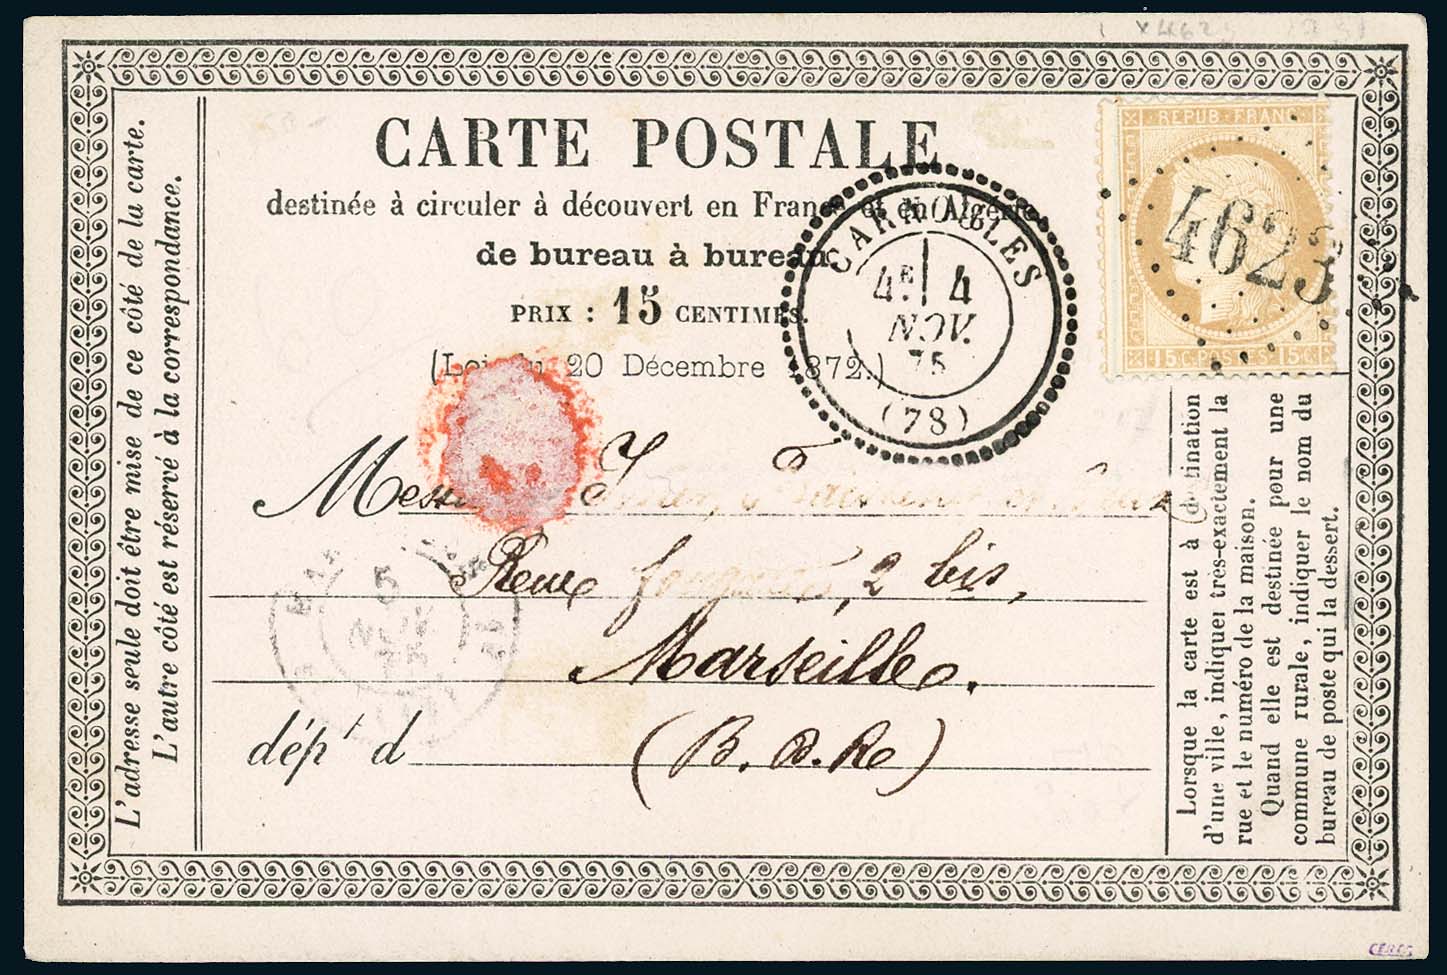 CARTE POSTALE
destinée à circuler à découvert en France et en Algérie
de bureau à bureau.
PRIX : 15 CENTIMES.
(Loi du 20 Décembre 1872.)
L'adresse seule doit être mise de ce côté de la carte.
L'autre côté est réservé à la correspondance.
CARNOULES
4E 4
NOV.
75
(78)
REPUB. FRANC.
15 C. POSTES 15 C.
4623
Rue 2 bis,
Marseille.
dépt d (B. d. R.)
5
NOV.
75
Lorsque la carte est à destination
d'une ville, indiquer tres-exactement la
rue et le numéro de la maison.
Quand elle est destinée pour une
commune rurale, indiquer le nom du
bureau de poste qui la dessert.
CÉRÈS